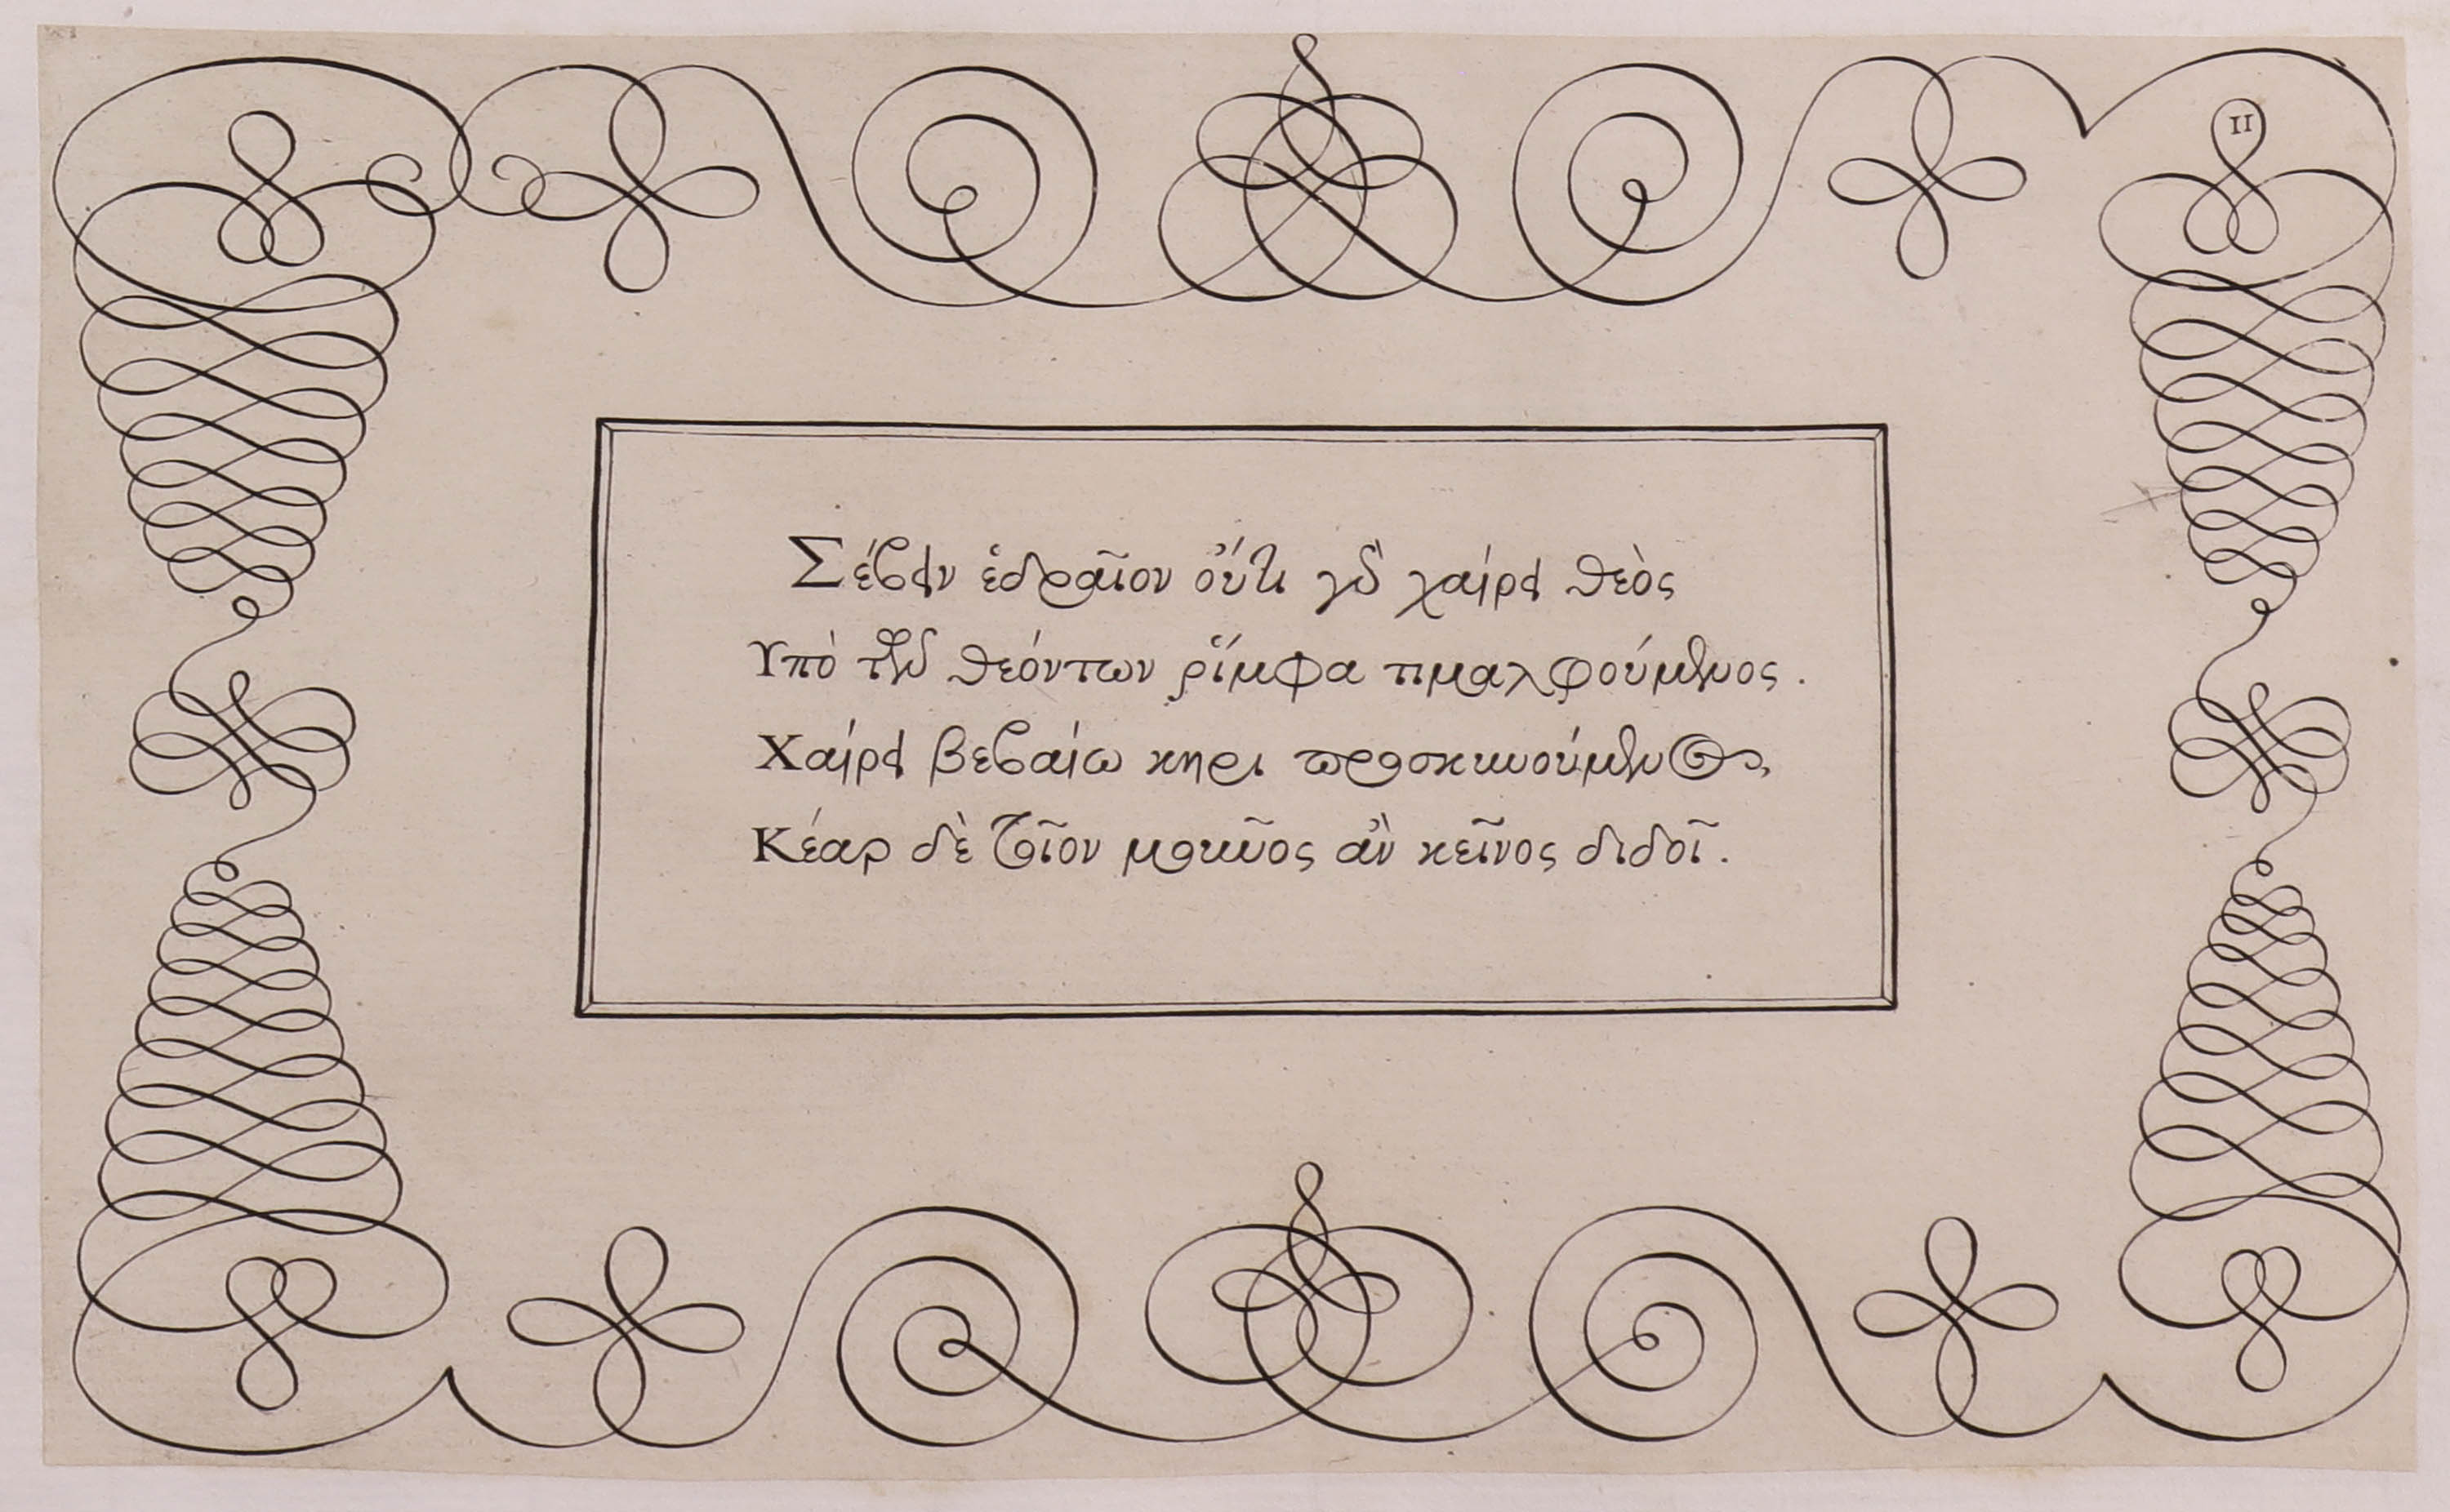 II
Σέβειν ἑδραῖον οὔτι γὰρ χαίρει θεὸς
Υπὸ τῶν θεόντων ῥίμφα τιμαλφούμενος.
Χαίρει βεβαίω κηρι προσκυνούμενος,
Κέαρ δὲ τοῖον μοῦνος ἂν κεῖνος διδοῖ.